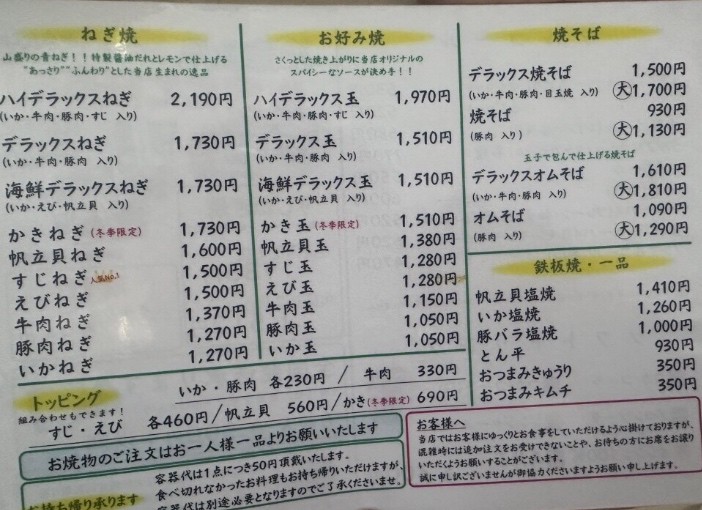 ねぎ焼
山盛りの青ねぎ！！特製醤油だれとレモンで仕上げる
“あっさり”“ふんわり”とした当店生まれの逸品
ハイデラックスねぎ 2,190円
(いか・牛肉・豚肉・すじ 入り)
デラックスねぎ 1,730円
(いか・牛肉・豚肉 入り)
海鮮デラックスねぎ 1,730円
(いか・えび・帆立貝 入り)
かきねぎ(冬季限定) 1,730円
帆立貝ねぎ 1,600円
すじねぎ 人気No.1 1,500円
えびねぎ 1,500円
牛肉ねぎ 1,370円
豚肉ねぎ 1,270円
いかねぎ 1,270円
お好み焼
さくっとした焼き上がりに当店オリジナルの
スパイシーなソースが決め手！！
ハイデラックス玉 1,970円
(いか・牛肉・豚肉・すじ 入り)
デラックス玉 1,510円
(いか・牛肉・豚肉 入り)
海鮮デラックス玉 1,510円
(いか・えび・帆立貝 入り)
かき玉(冬季限定) 1,510円
帆立貝玉 1,380円
すじ玉 1,280円
えび玉 1,280円
牛肉玉 1,150円
豚肉玉 1,050円
いか玉 1,050円
焼そば
デラックス焼そば 1,500円
(いか・牛肉・豚肉・目玉焼 入り) 大1,700円
焼そば 930円
(豚肉 入り) 大1,130円
玉子で包んで仕上げる焼そば
デラックスオムそば 1,610円
(いか・牛肉・豚肉 入り) 大1,810円
オムそば 1,090円
(豚肉 入り) 大1,290円
鉄板焼・一品
帆立貝塩焼 1,410円
いか塩焼 1,260円
豚バラ塩焼 1,000円
とん平 930円
おつまみきゅうり 350円
おつまみキムチ 350円
トッピング
組み合わせもできます！
いか・豚肉 各230円 / 牛肉 330円
すじ・えび 各460円/帆立貝 560円/かき(冬季限定) 690円
お焼物のご注文はお一人様一品よりお願いいたします
お持ち帰り承ります
容器代は1点につき50円頂戴いたします。
食べ切れなかったお料理もお持ち帰りいただけますが、
容器代は別途必要となりますのでご了承くださいませ。
お客様へ
当店ではお客様にゆっくりとお食事をしていただけるよう心掛けておりますが、
混雑時には追加注文をお受けできないことや、お待ちの方にお席をお譲り
いただくようお願いすることがございます。
誠に申し訳ございませんが御協力くださいますようお願い申し上げます。